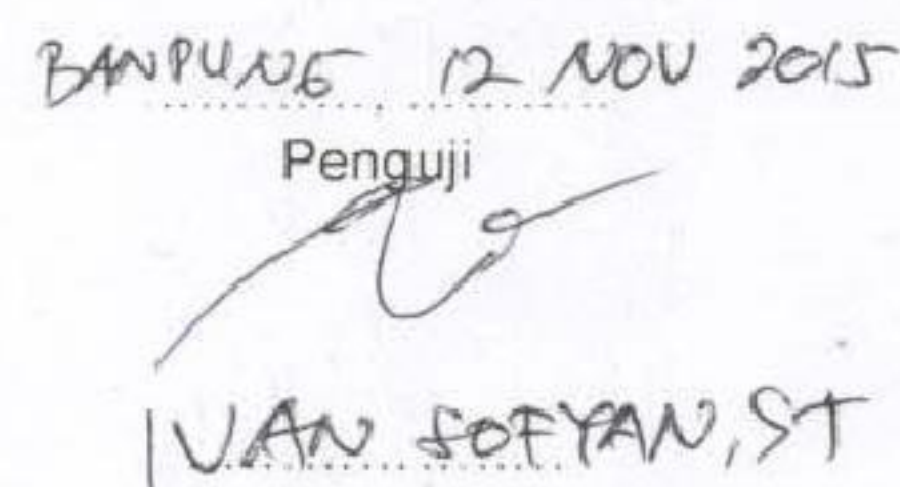 BANDUNG 12 NOV 2015
Penguji
IVAN SOFYAN, ST